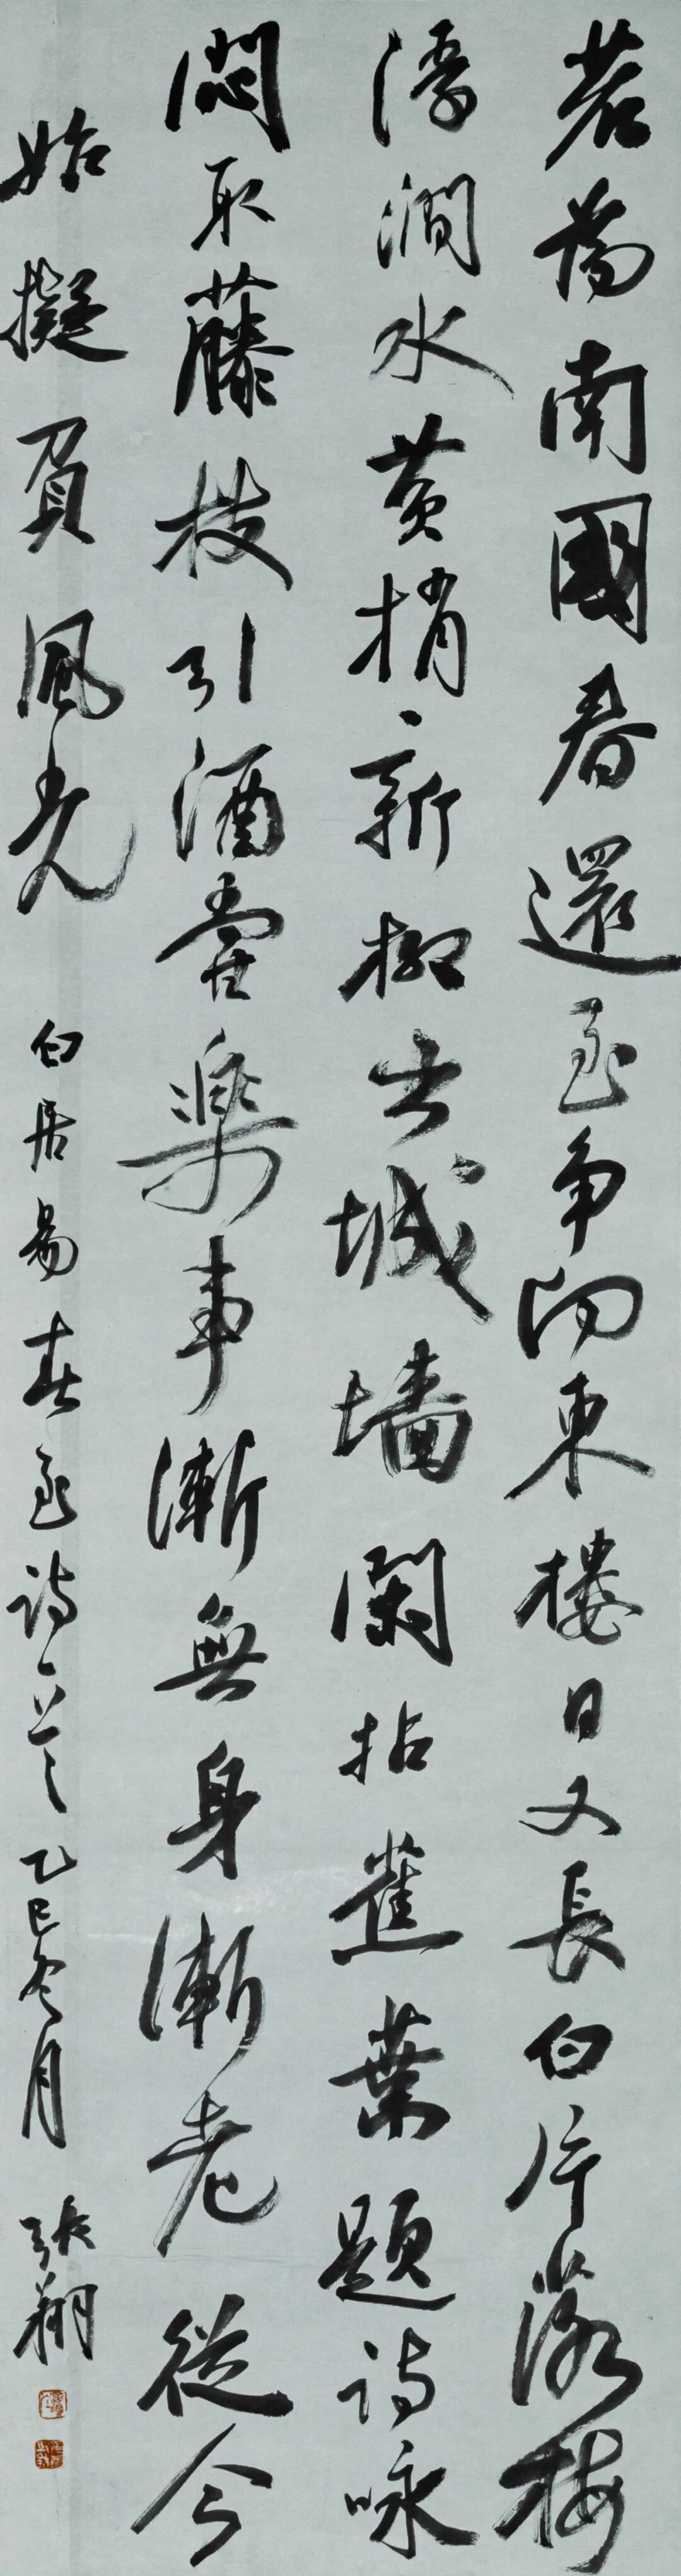 若為南國春還至爭向東樓日又長白片落梅
浮澗水黃梢新柳出城墻閑拈蕉葉題詩咏
悶取藤枝引酒嘗樂事漸無身漸老從今
始擬負風光 白居易春至詩一首 乙巳冬月 張翔